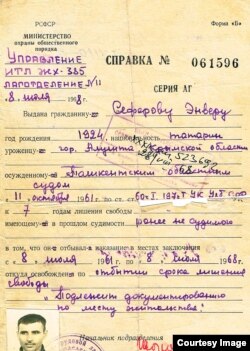 РСФСР
Форма «Б»
МИНИСТЕРСТВО
охраны общественного
порядка
Управление
ИТЛ ЖХ-385
Лаготделение №11
8 июля 1968 г.
СПРАВКА № 061596
СЕРИЯ АГ
Выдана гражданину
Сеферову Энверу
год рождения 1924, национальность татарин
уроженцу гор. Алушта Крымской области
осужденному Ташкентским областным
судом
11 октября 1961 г. по ст.
к 7 годам лишения свободы
имеющему в прошлом судимость ранее не судимого
в том, что он отбывал наказание в местах заключения
с 8 июля 1961 по 8 июля 1968 г.
откуда освобожден по отбытии срока лишения
свободы
"Подлежит документированию
по месту жительства"
Начальник подразделения
Courtesy Image